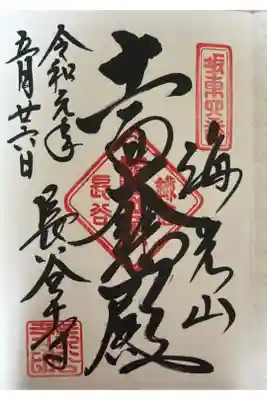 坂東四番
海光山
十一面大悲殿
長谷寺
令和元年
五月廿六日